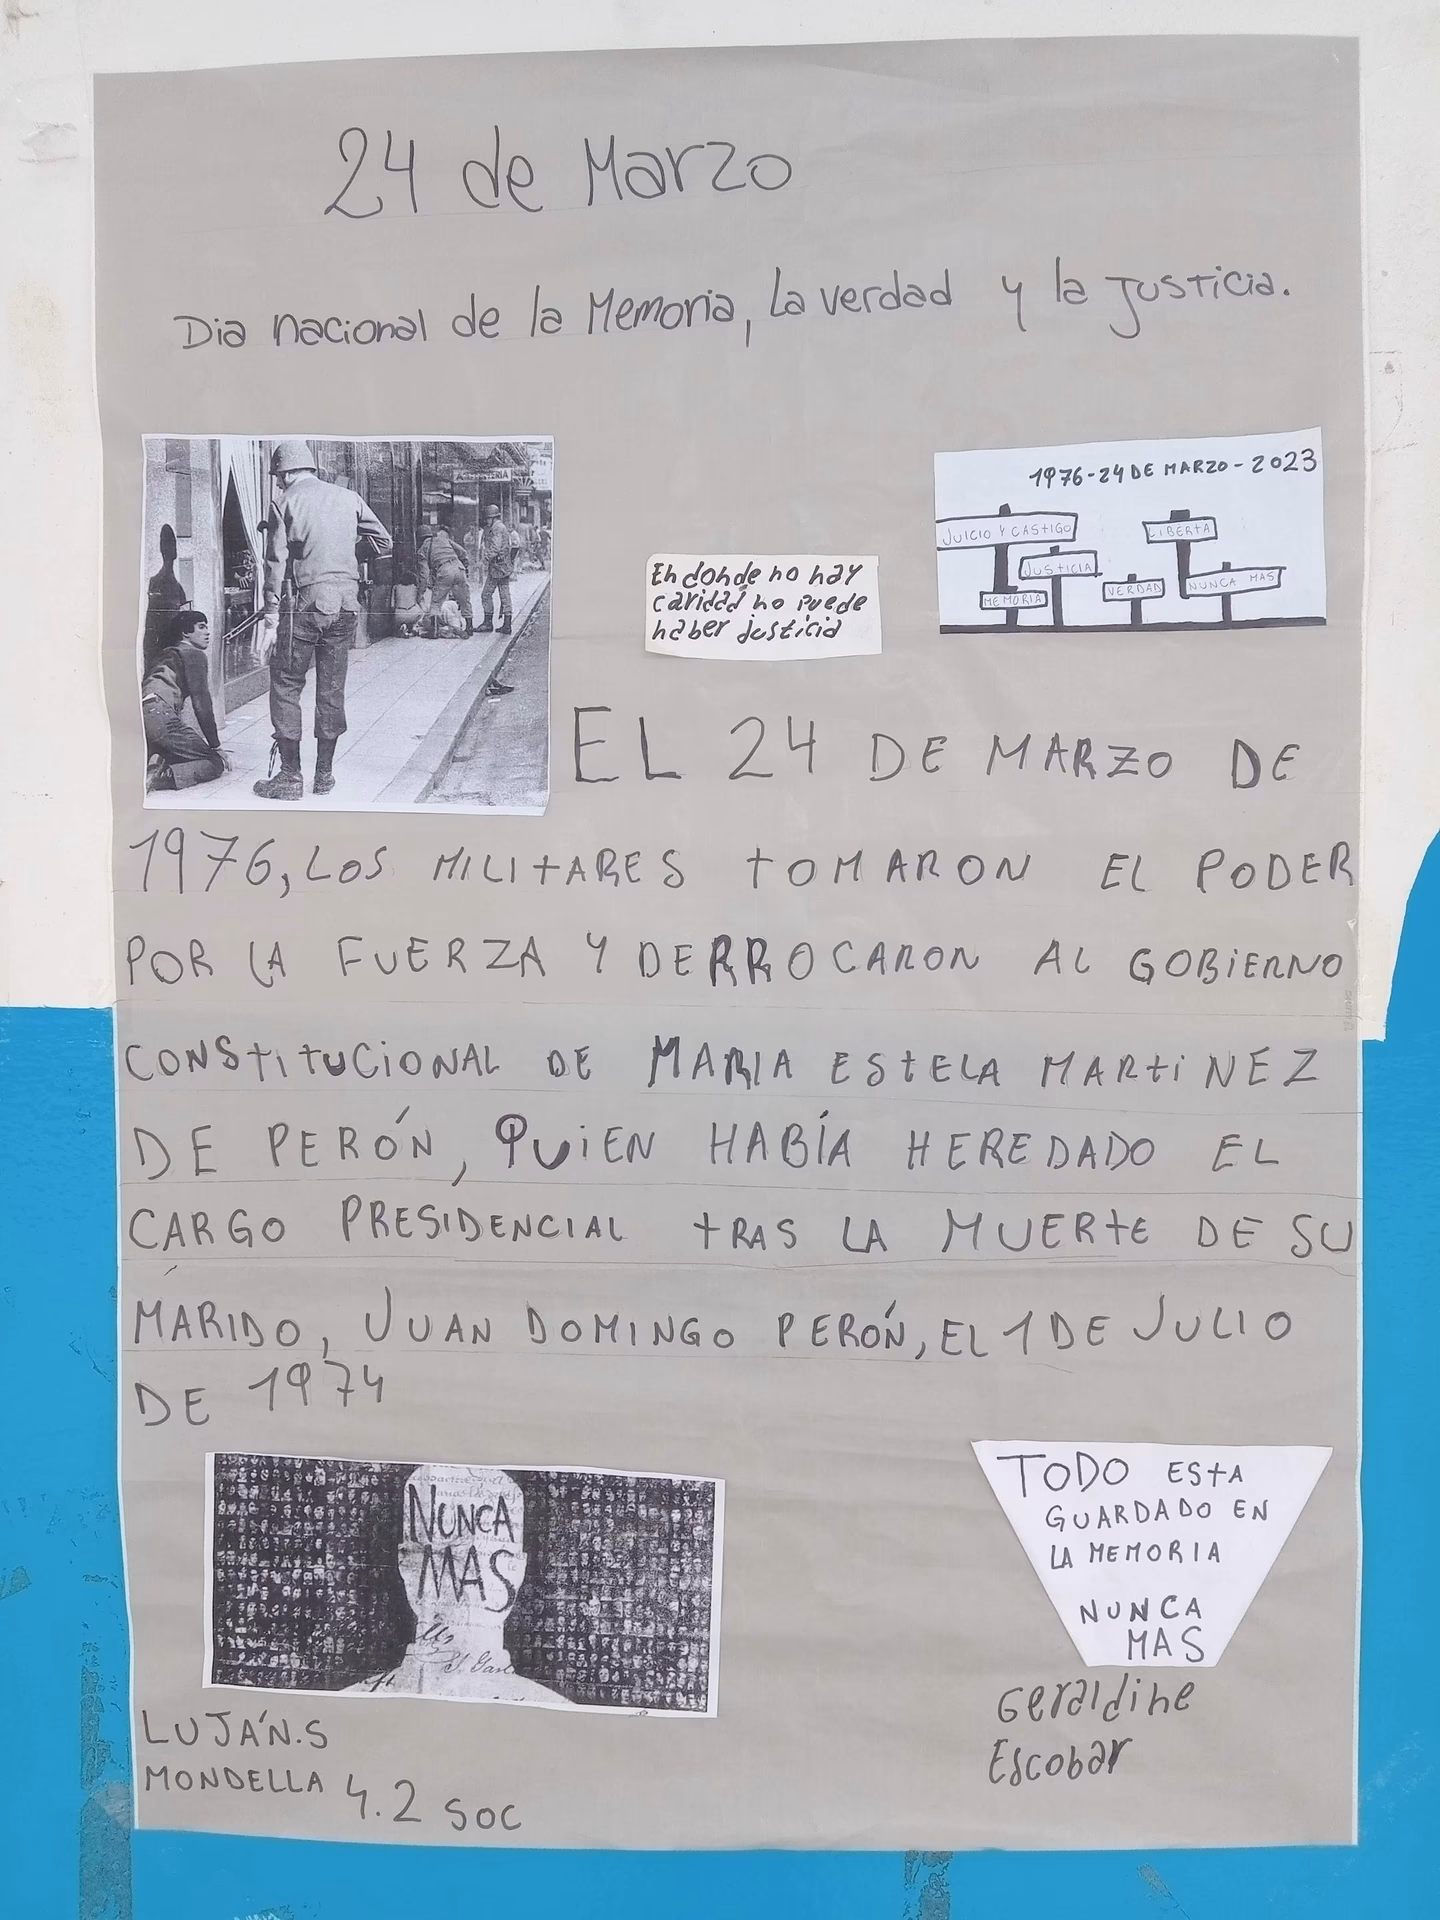 24 de Marzo
Dia nacional de la Memoria, La verdad y la Justicia.
1976-24 DE MARZO-2023
JUICIO Y CASTIGO
LIBERTA
JUSTICIA
MEMORIA
VERDAD
NUNCA MAS
En donde no hay
caridad no puede
haber justicia
EL 24 DE MARZO DE
1976, LOS MILITARES TOMARON EL PODER
POR LA FUERZA Y DERROCARON AL GOBIERNO
CONSTITUCIONAL DE MARIA ESTELA MARTINEZ
DE PERÓN, QUIEN HABÍA HEREDADO EL
CARGO PRESIDENCIAL TRAS LA MUERTE DE SU
MARIDO, JUAN DOMINGO PERÓN, EL 1 DE JULIO
DE 1974
NUNCA
MAS
TODO ESTA
GUARDADO EN
LA MEMORIA
NUNCA
MAS
LUJÁN.S
MONDELLA 4.2 SOC
Geraldine
Escobar